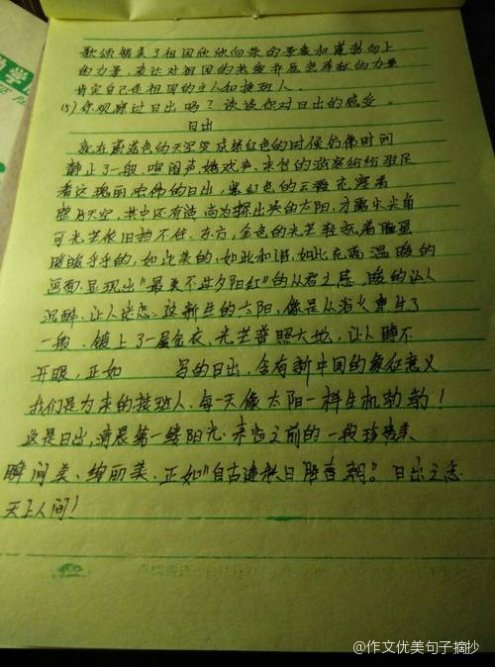 歌颂描写了祖国欣欣向荣的景象和蓬勃向上
的力量，表达对祖国的热爱并
肯定自己在祖国的主人和接班人。
(5)你观察过日出吗？谈谈你对日出的感受。
日出
就在蔚蓝色的天空变成绯红色的时候仿佛时间
静止了一般，喧闹声、嬉戏声、
着这瑰丽的日出，紫红色的云霞充塞着
整片天空，其中还有淡
可光芒依旧挡不住，东方，金色的光芒轻抚着脸蛋
暖暖乎乎的，如此美的，如此和谐，如此充满温暖的
画面显现出“最美不过夕阳红”的从容之感，暖的让人
沉醉，让人迷恋。这新生的太阳，像是从浴火重生了
一般、镀上了一层金衣，光芒普照大地，让人睁不
开眼，正如 写的日出，含有新中国的象征意义
我们是为未来的接班人，每一天像太阳一样生机勃勃！
这是日出，清晨第一缕阳光，来临之前的一段珍贵
瞬间美、绚丽美，正如“自古逢秋日胜春朝”。日出之态
天上人间！
@作文优美句子摘抄